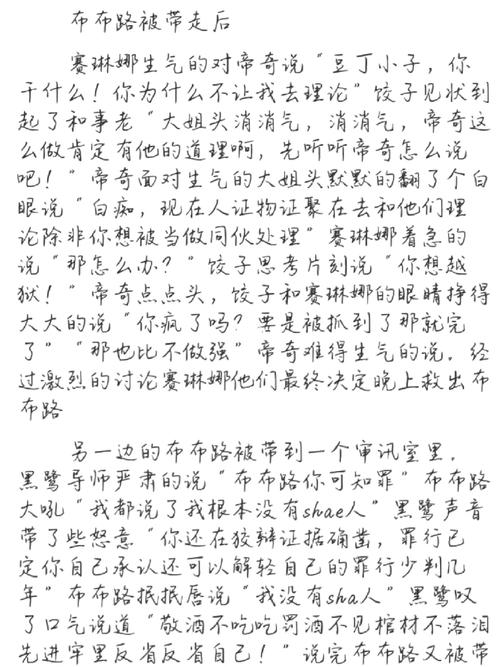 布布路被带走后
赛琳娜生气的对帝奇说“豆丁小子，你
干什么！你为什么不让我去理论”饺子见状到
起了和事老“大姐头消消气，消消气，帝奇这
么做肯定有他的道理啊，先听听帝奇怎么说
吧！”帝奇面对生气的大姐头默默的翻了个白
眼说“白痴，现在人证物证聚在去和他们理
论除非你想被当做同伙处理”赛琳娜着急的
说“那怎么办？”饺子思考片刻说“你想越
狱！”帝奇点点头，饺子和赛琳娜的眼睛挣得
大大的说“你疯了吗？要是被抓到了那就完
了”“那也比不做强”帝奇难得生气的说。经
过激烈的讨论赛琳娜他们最终决定晚上救出布
布路
另一边的布布路被带到一个审讯室里。
黑鹭导师严肃的说“布布路你可知罪”布布路
大吼“我都说了我根本没有shae人”黑鹭声音
带了些怒意“你还在狡辩证据确凿，罪行已
定你自己承认还可以解轻自己的罪行少判几
年”布布路抿抿唇说“我没有sha人”黑鹭叹
了口气说道“敬酒不吃吃罚酒不见棺材不落泪
先进牢里反省反省自己！”说完布布路又被带